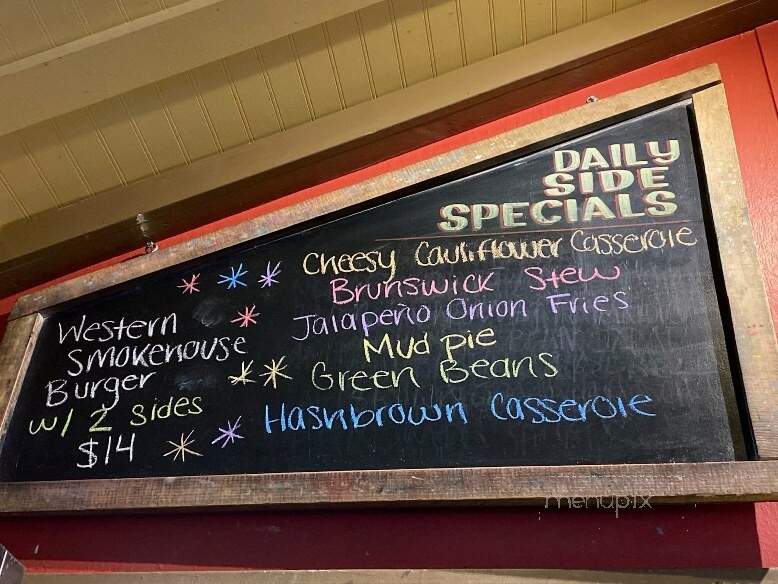 DAILY
SIDE
SPECIALS
Cheesy Cauliflower Casserole
Brunswick Stew
Jalapeño Onion Fries
Mud pie
Green Beans
Hashbrown Casserole
Western
Smokehouse
Burger
w/ 2 sides
$14
menupix